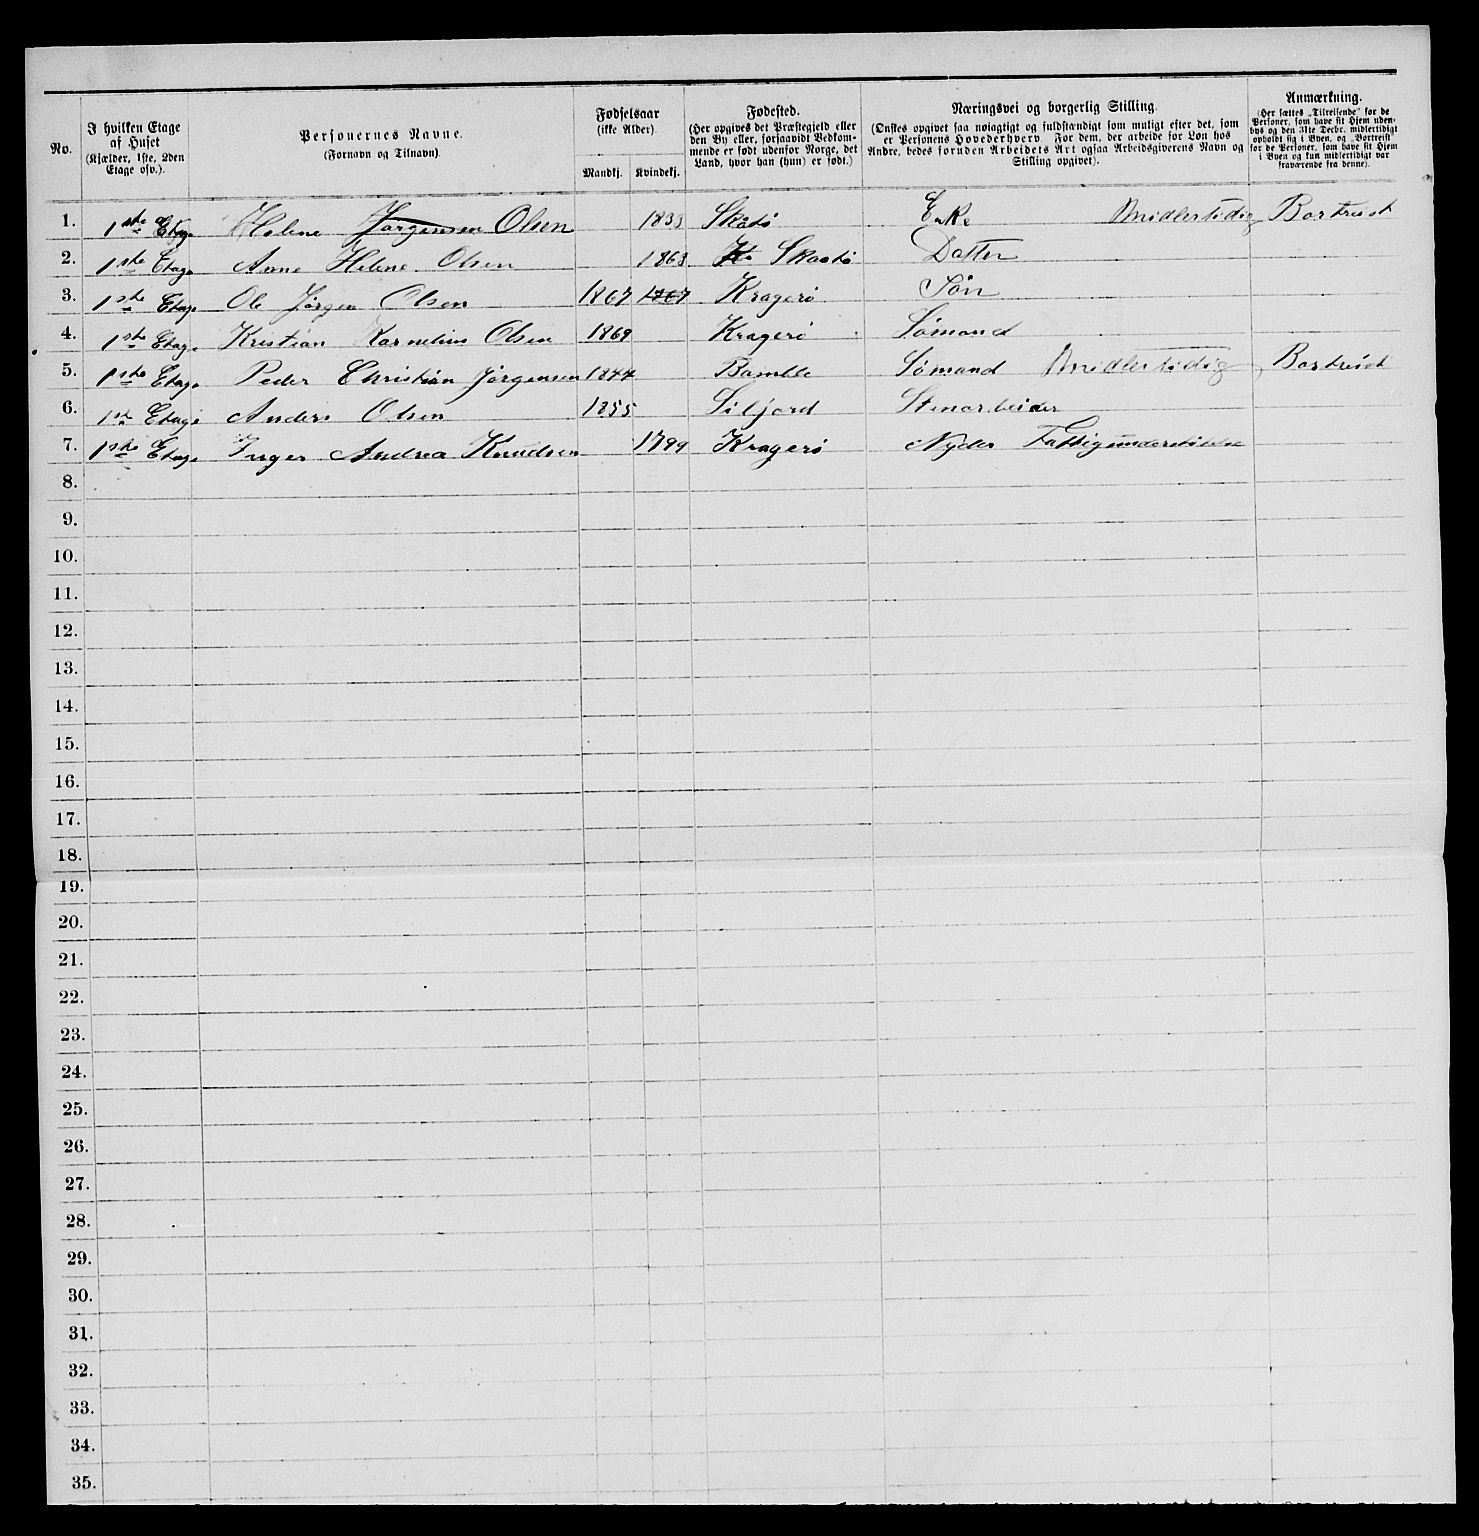 No.
I hvilken Etage
af Huset
(Kjælder, 1ste, 2den
Etage osv.).
Personernes Navne.
(Fornavn og Tilnavn)
Fødselsaar
(ikke Alder).
Mandkj. Kvindekj.
Fødested.
(Her opgives det Præstegjeld eller
den By eller, forsaavidt Vedkom-
mende er født udenfor Norge, det
Land, hvor han (hun) er født.)
Næringsvei og borgerlig Stilling.
(Ønskes opgivet saa nøiagtigt og fuldstændigt som muligt efter det, som
er Personens Hovederhverv. For dem, der arbeide for Løn hos
Andre, bedes foruden Arbeidets Art ogsaa Arbeidsgiverens Navn og
Stilling opgivet).
Anmærkning.
(Her sættes „Tilreisende" for de
Personer, som have sit Hjem uden-
bys og den 31te Decbr. midlertidigt
opholdt sig i Byen, og „Bortreist"
for de Personer, som have sit Hjem
i Byen og kun midlertidigt var
fraværende fra denne).
1. 1ste Etage Helene Jørgensen Olsen 1833 Skatø Enke Midlertidig Bortreist
2. 1ste Etage Anne Helene Olsen 1863 Kr Skaatø Datter
3. 1ste Etage Ole Jørgen Olsen 1867 1867 Kragerø Søn
4. 1ste Etage Kristian Kornelius Olsen 1869 Kragerø Sømand
5. 1ste Etage Peder Christian Jørgensen 1844 Bamble Sømand Midlertidig Bortreist
6. 1ste Etage Anders Olsen 1855 Siljord Stenarbeider
7. 1ste Etage Inger Andrea Knudsen 1799 Kragerø Nyder Fattigunderstøttelse
8.
9.
10.
11.
12.
13.
14.
15.
16.
17.
18.
19.
20.
21.
22.
23.
24.
25.
26.
27.
28.
29.
30.
31.
32.
33.
34.
35.